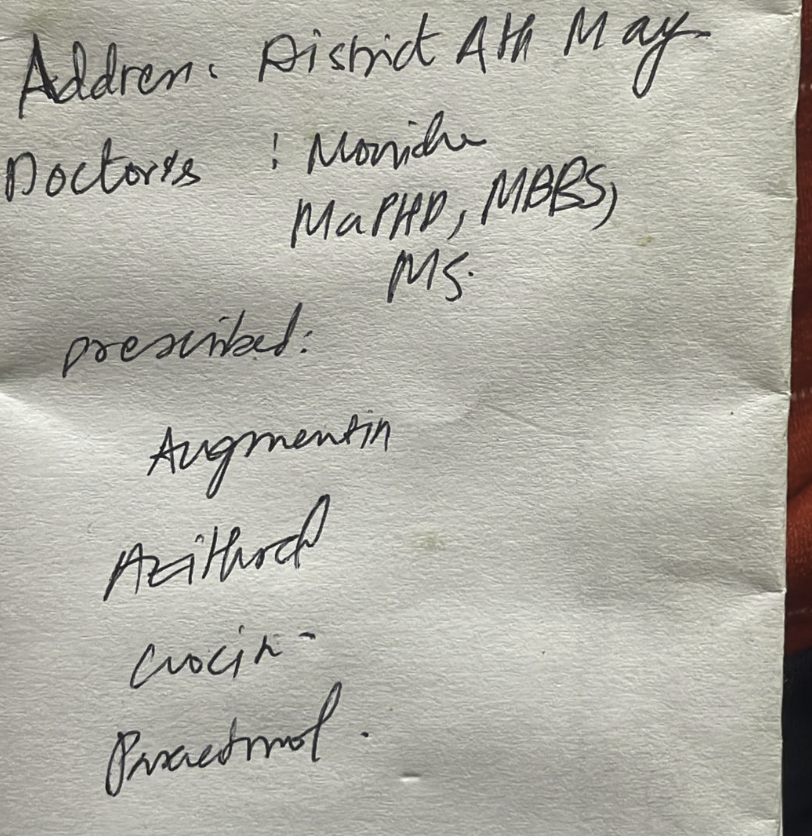 Address: District 4th May
Doctor's : Monicha
MaPHD, MBBS,
MS.
prescribed:
Augmentin
Azithral
Crocin -
Paracetmol.